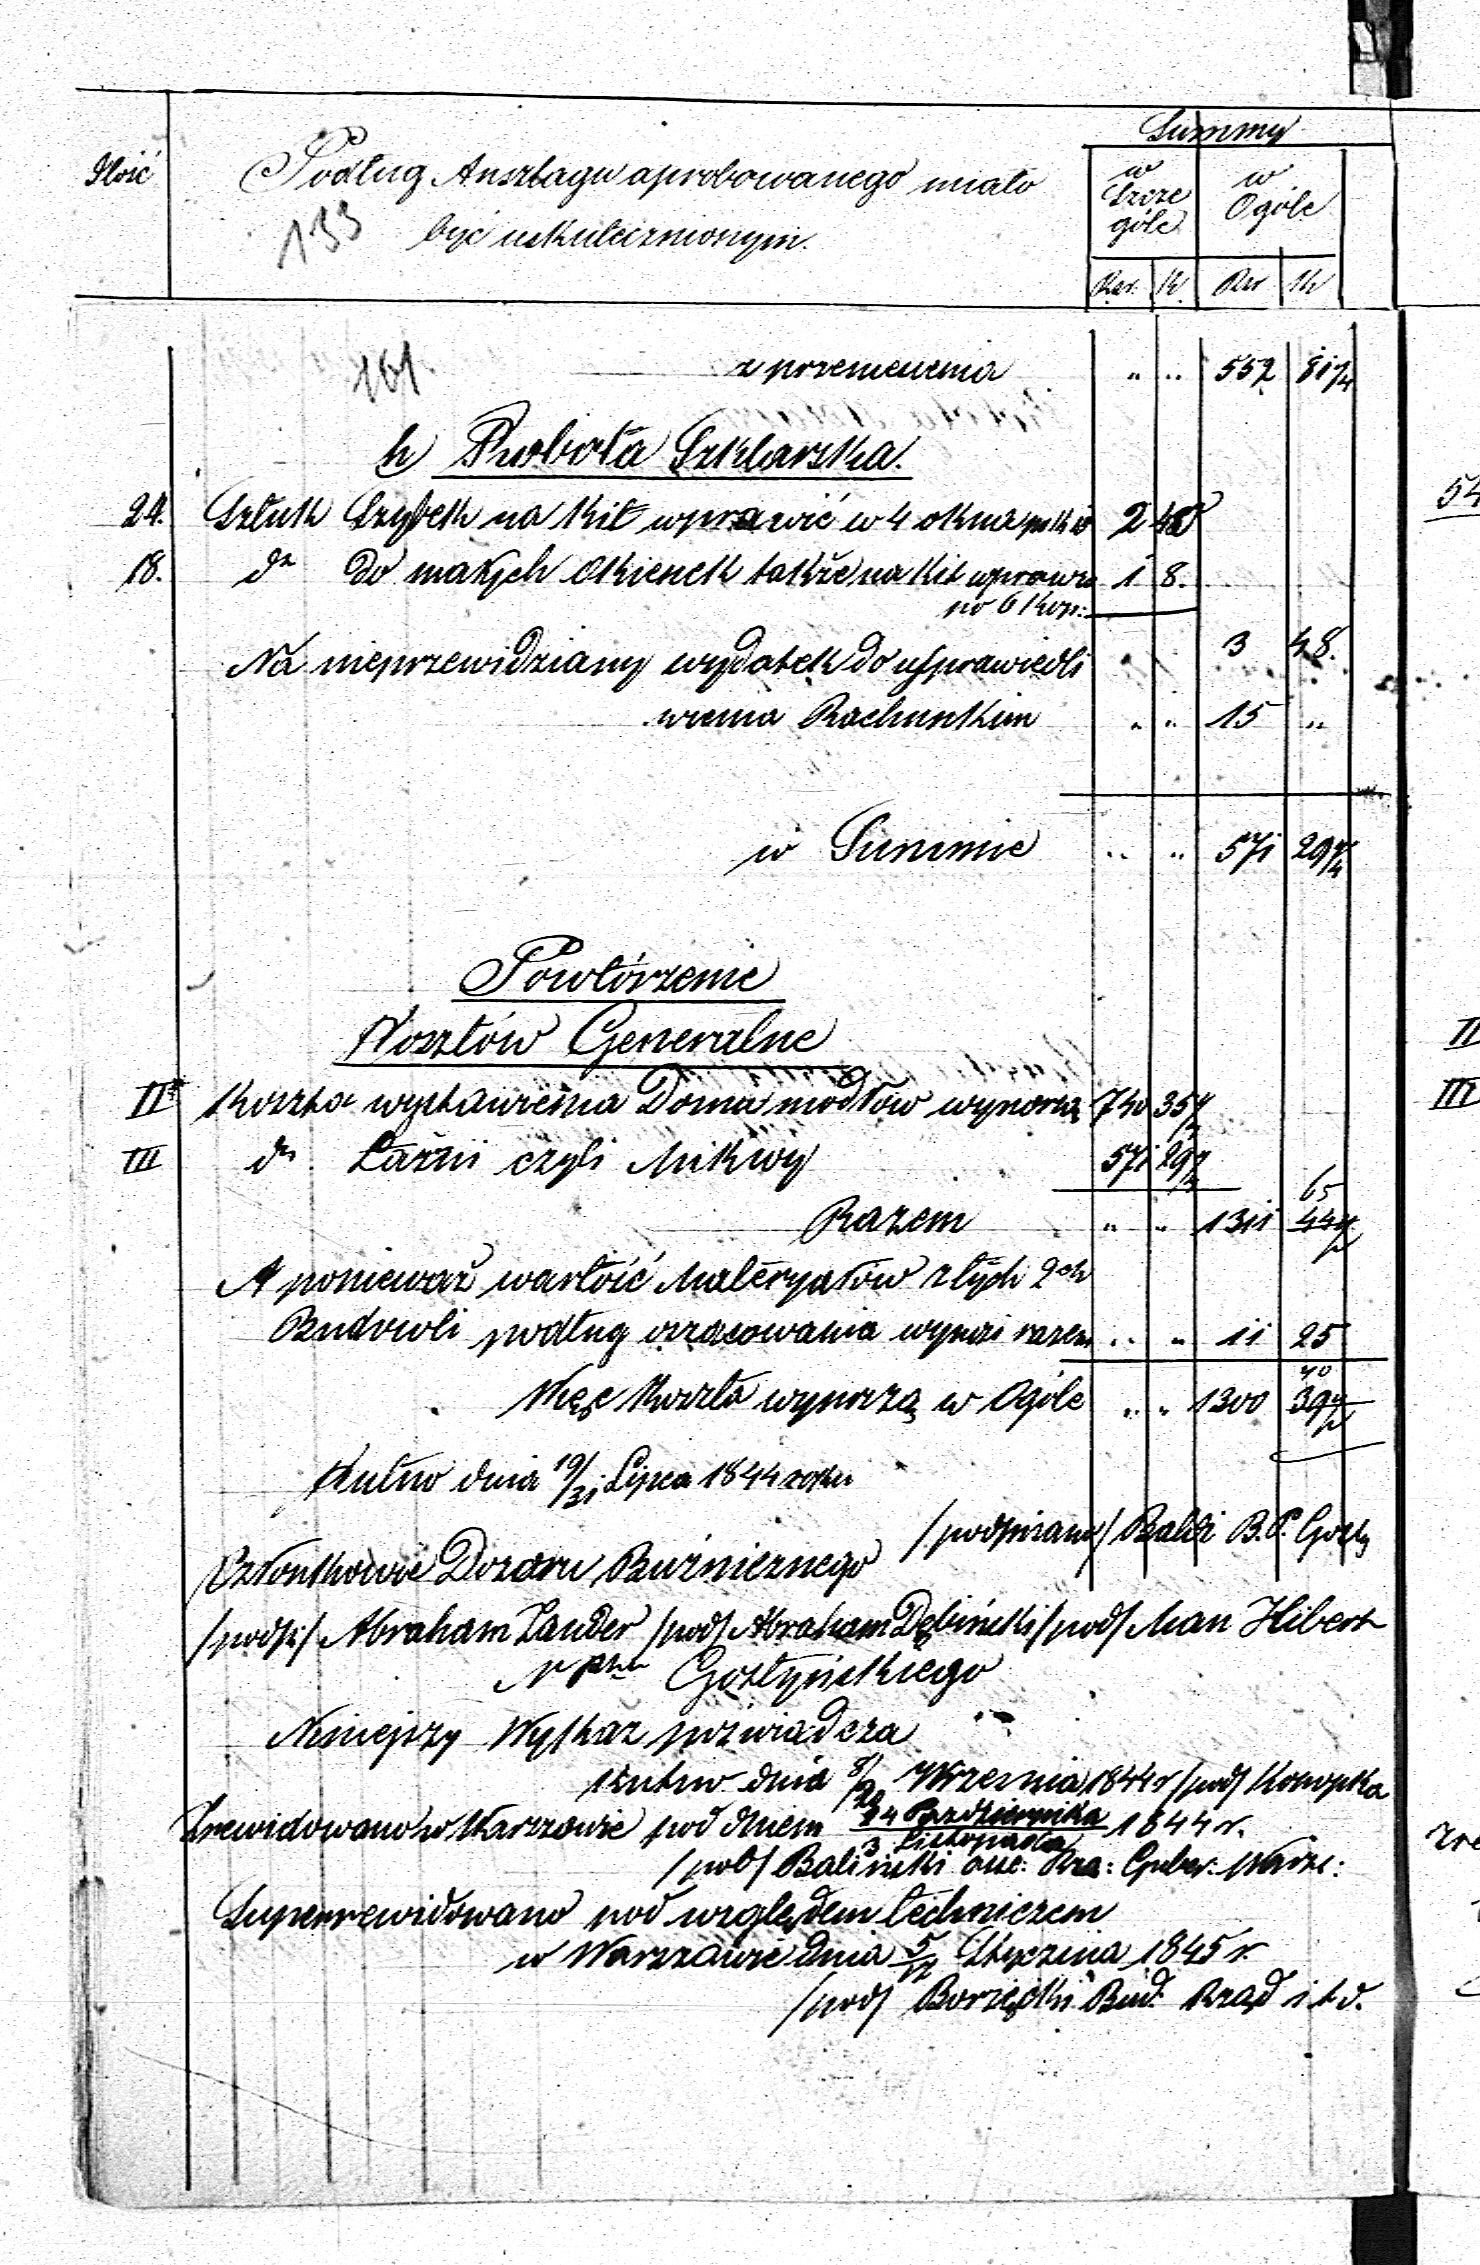 Summy
Ilość
Podług Anszlagu aprobowanego miało
133 być uskutecznionym.
w Szczególe
w Ogóle
Rsr. K. Rsr K
161 z przeniesienia " " 552 81 1/4
h Robota Szklarska.
24. Sztuk Szybek na Kit wprawić w 4 okna 2 40
18. do do małych Okienek także na Kit wprawić 1 8.
po 6 Kop:
3 48.
Na nieprzewidziany wydatek do usprawiedli
wienia Rachunkiem " " 15 "
w Summie " " 571 29 1/4
Powtórzenie
Kosztów Generalne
II Koszta wystawienia Domu modłów wynoszą 740 35
III do Łaźni czyli Mikwy 571 29
65
Razem " " 1311 44
A ponieważ wartość Materyałów z tych 2ch
Budowli podług oszacowania wynosi razem " " 11 25
40
Więc Koszta wynoszą w Ogóle " " 1300 39
Kutno dnia 19/31 Lipca 1844 roku
/podpisano/ Balbi B. P. Gosty
Członkowie Dozoru Bużnicznego
/podpi/ Abraham Zander /pod/ Abraham Dębiński /pod/ Man Hibert
Gostyńskiego
Niniejszy Wykaz poświadcza
Kutno dnia 8/20 Września 1844 r /pod/ Konopka
Zrewidowano w Warszawie pod dniem 24 Października / 3 Listopada 1844 r.
/pod/ Baliński Guber: Warsz:
Superrewidowano pod względem technicznem
w Warszawie dnia 5/17 Stycznia 1845 r.
/pod/ Borzęcki Bud. Rząd i t d.